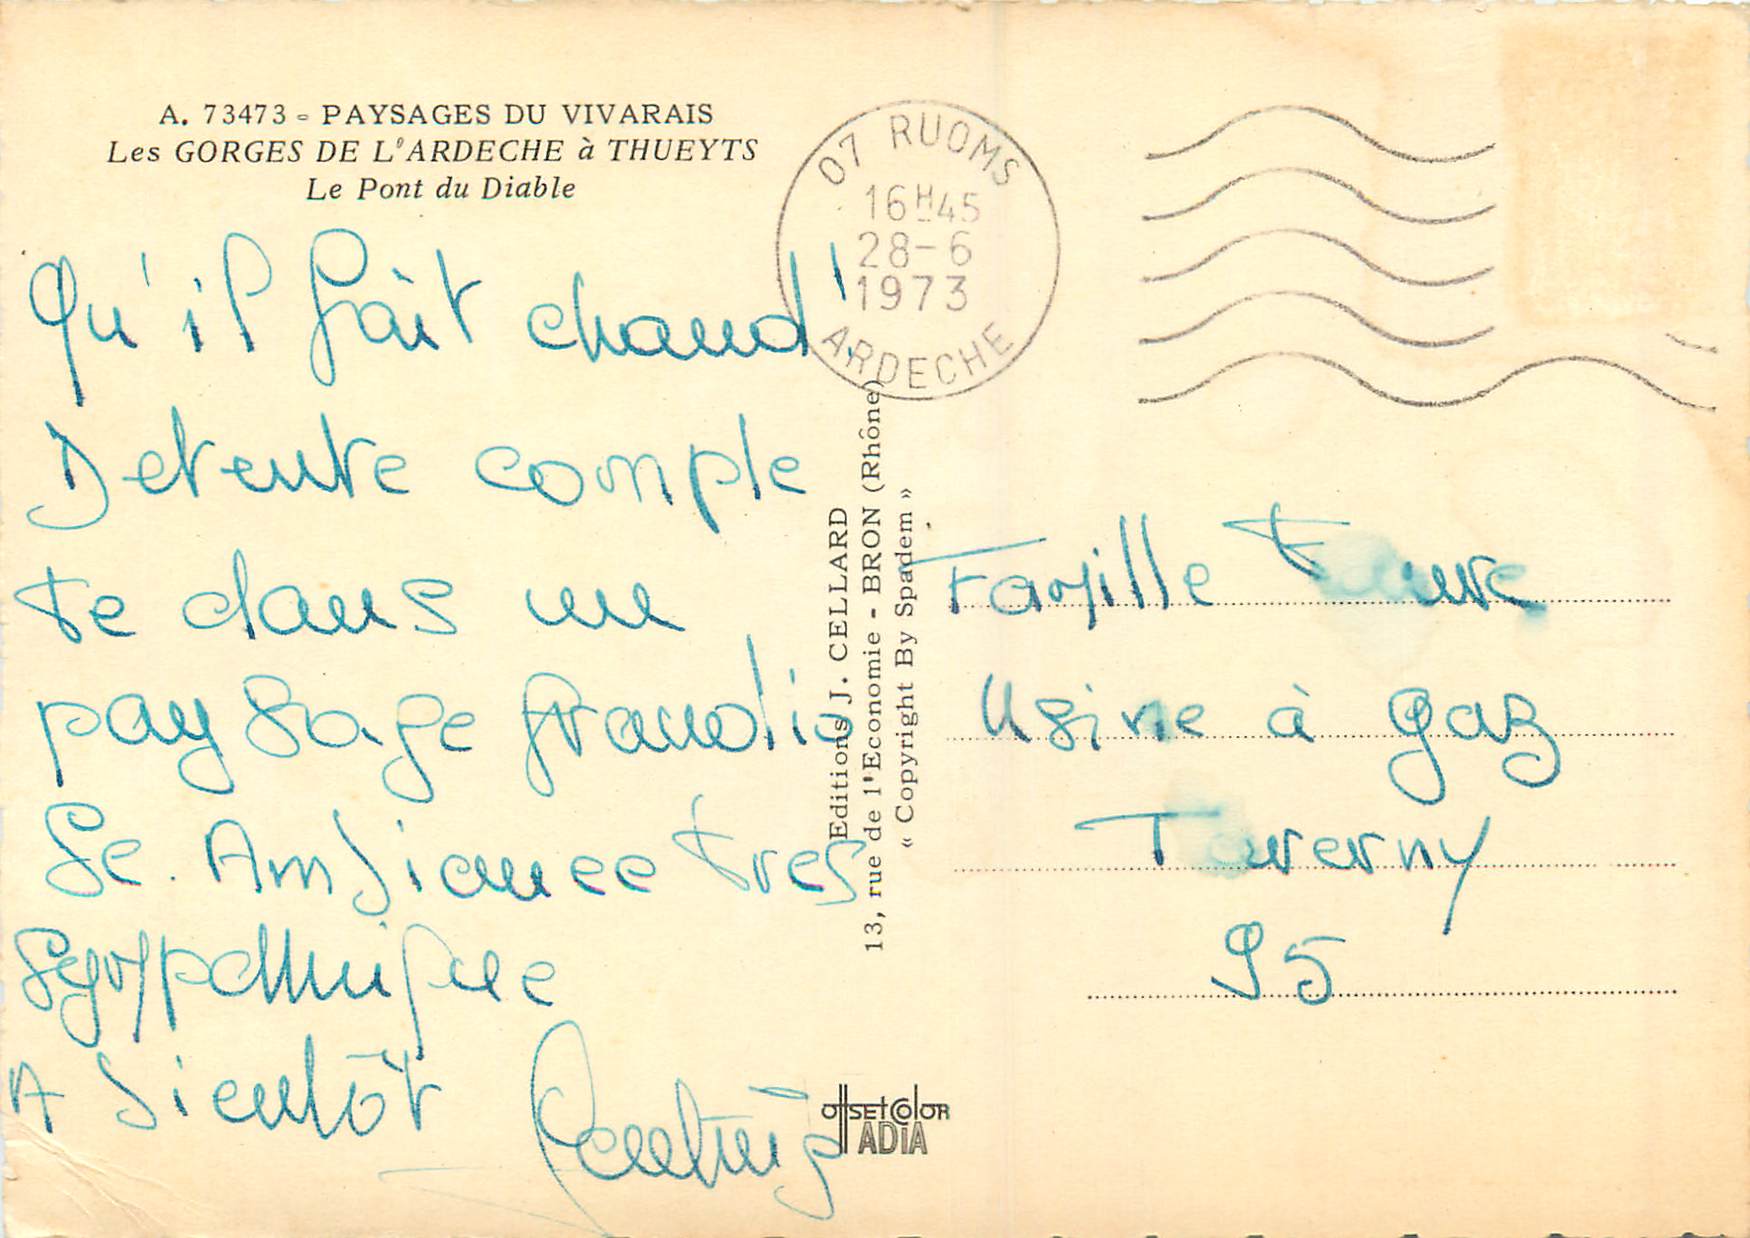 A. 73473 - PAYSAGES DU VIVARAIS
Les GORGES DE L'ARDECHE à THUEYTS
Le Pont du Diable
Qu'il fait chaud !
Detente comple
te dans un
paysage grandio
se. Ambiance tres
sympathique
A bientôt
07 RUOMS
16H45
28-6
1973
ARDECHE
Editions J. CELLARD
13, rue de l'Economie - BRON (Rhône)
« Copyright By Spadem »
Famille Faure
Usine à gaz
Taverny
95
offset color
ADIA